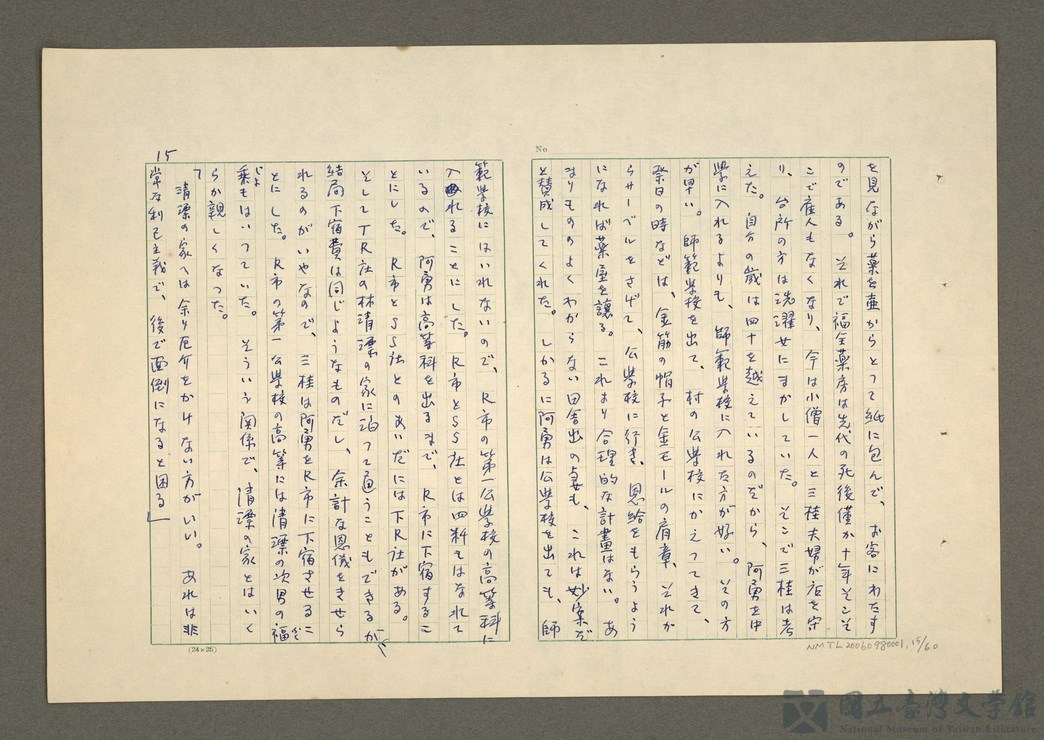 No
を見ながら薬を壷からとって紙に包んで、お客にわたす
のである。それで福全薬房は先代の死後僅か十年そこそ
こで産人もなくなり、今は小僧一人と三桂夫婦が店を守
り、台所の方は洗濯女にまかしていた。そこで三桂は考
えた。自分の歳は四十を越えているのだから、阿勇を中
學に入れるよりも、師範學校に入れた方が好い。その方
が早い。師範學校を出て、村の公學校にかえってきて、
祭日の時などは、金筋の帽子と金モールの肩章、それか
らサーベルをさげて、公學校に行き、恩給をもらうよう
になれば薬屋を譲る。これより合理的な計畫はない。あ
まりもののよくわからない田舎出の妻も、これは妙案だ
と賛成してくれた。しかるに阿勇は公學校を出ても、師
範學校にはいれないので、R市の第一公學校の高等科に
入れることにした。R市とSS社とは四粁もはなれて
いるので、阿勇は高等科を出るまで、R市に下宿するこ
とにした。R市とSS社とのあいだには下R社がある。
そして下R社の林清漂の家に泊って通うこともできるが、
結局下宿費は同じようなものだし、余計な恩儀をきせら
れるのがいやなので、三桂は阿勇をR市に下宿させるこ
とにした。R市の第一公學校の高等には清漂の次男の福
乗もはいっていた。そういう関係で、清漂の家とはいく
じょ
らか親しくなった。
「清漂の家へは余り厄介をかけない方がいい。あれは非
常な利己主義で、後で面倒になると困る」
15
(24×25)
NMTL20060980001,15/60
國立臺灣文學館
National Museum of Taiwan Literature